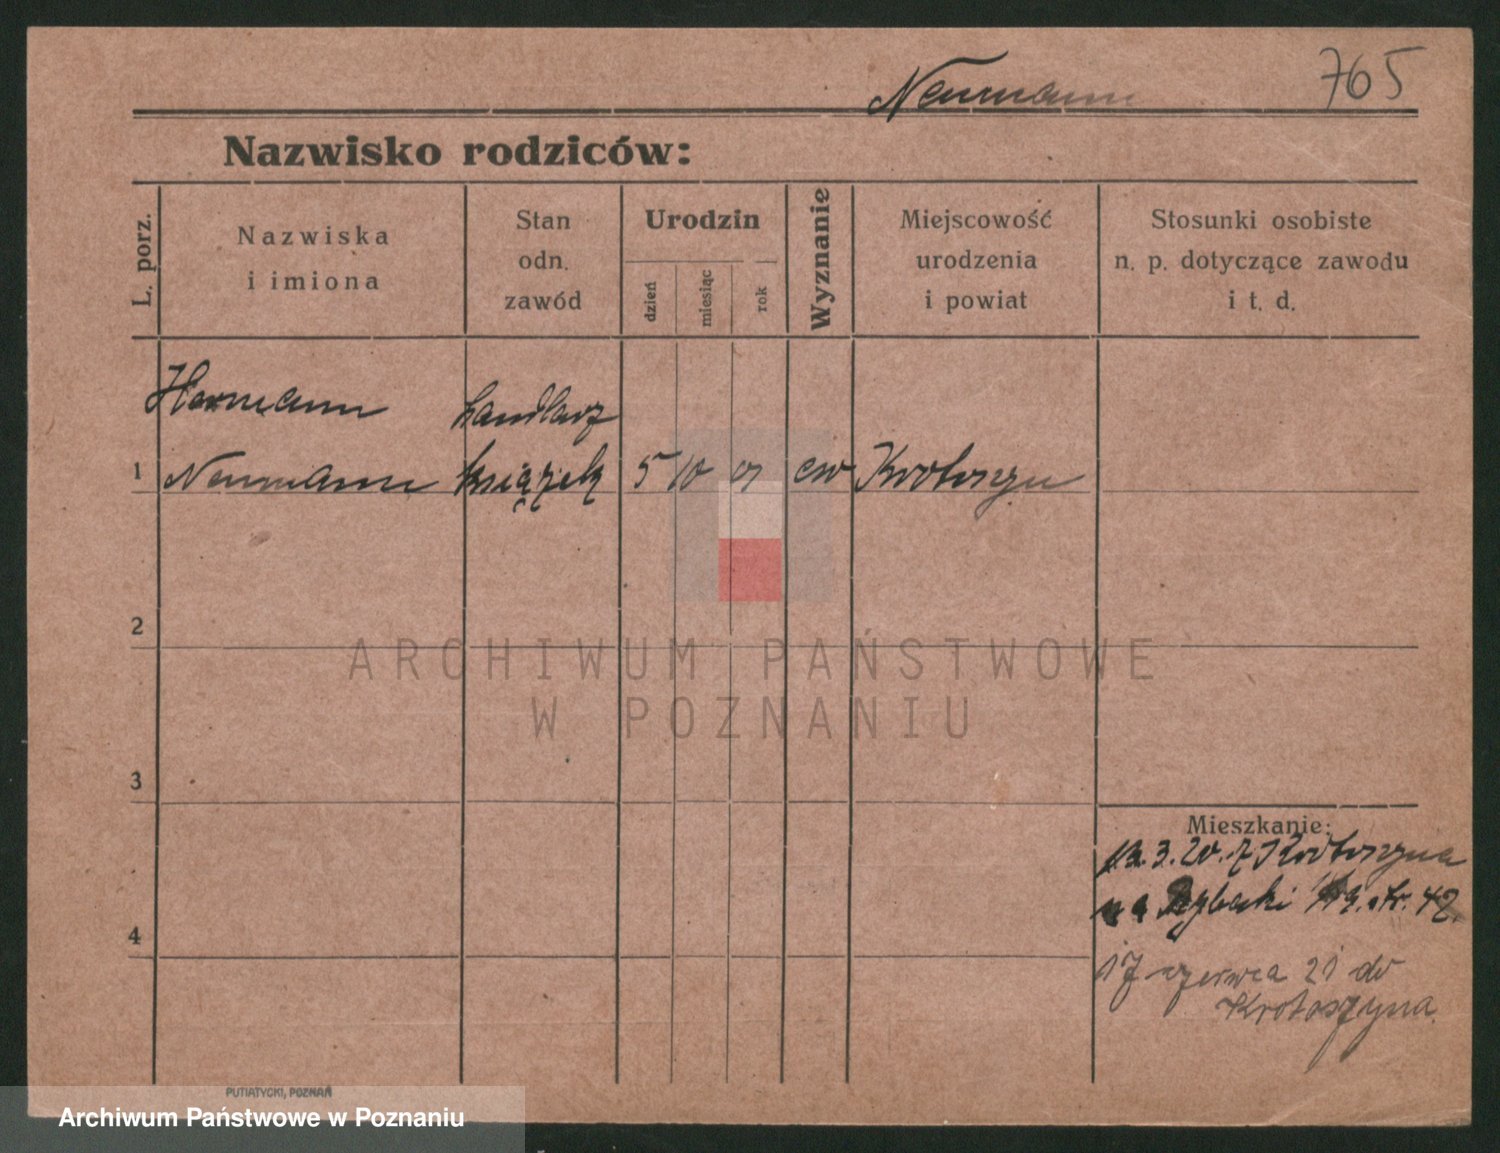 Neumann 765
Nazwisko rodziców:
L. porz.
Nazwiska
i imiona
Stan
odn.
zawód
Urodzin
dzień
miesiąc
rok
Wyznanie
Miejscowość
urodzenia
i powiat
Stosunki osobiste
n. p. dotyczące zawodu
i t. d.
Hermann handlarz
1 Neumann książek 5 10 ew Krotoszyn
2
3
4
Mieszkanie:
3. 20. z Krotoszyna
na Rybaki str. 42.
17 czerwca 21 do
Krotoszyna.
ARCHIWUM PAŃSTWOWE
W POZNANIU
PUTIATYCKI, POZNAŃ
Archiwum Państwowe w Poznaniu